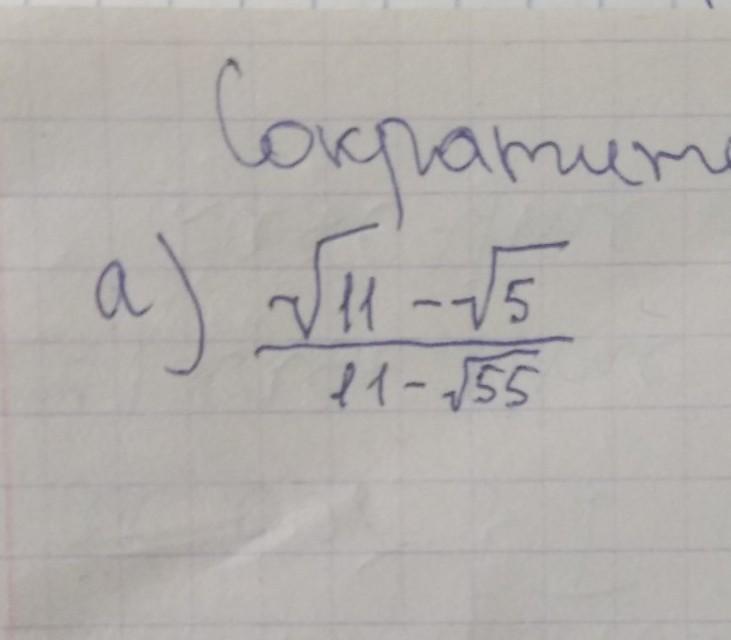 Сократите
а) √11 - √5
11 - √55